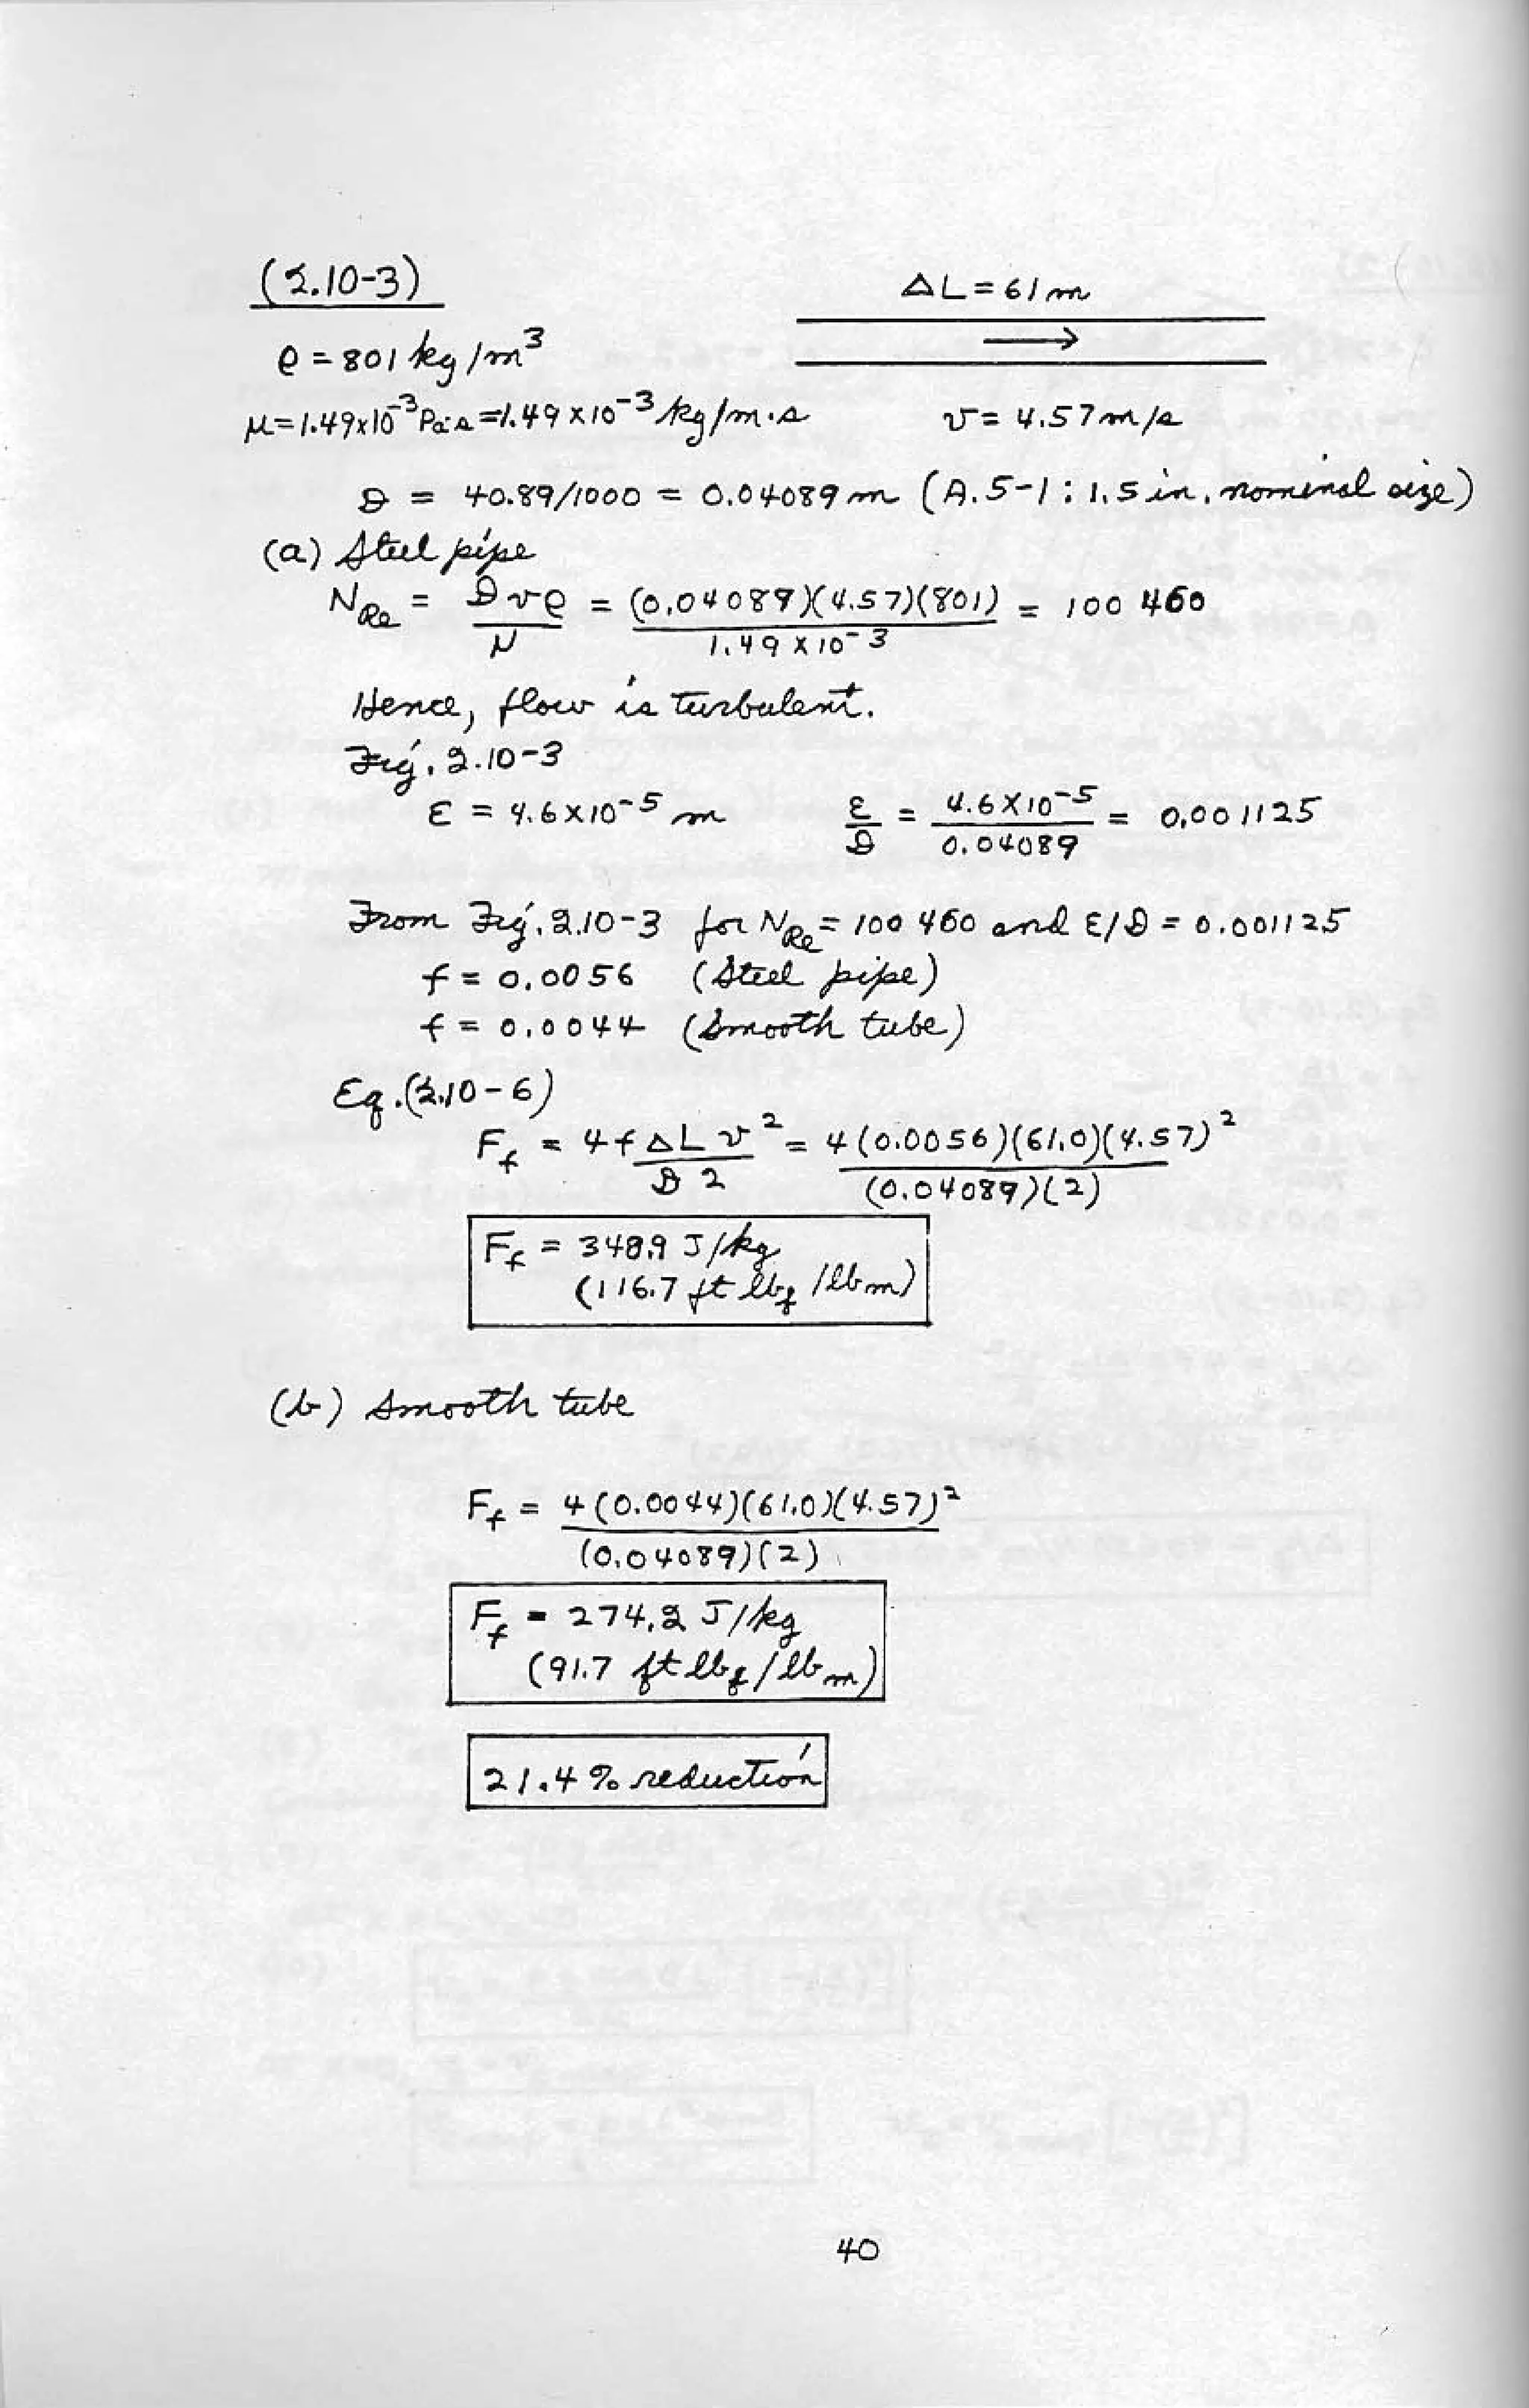 (2.10-3)
ΔL = 61 m
ρ = 801 kg/m³
μ = 1.49x10⁻³ Pa·s = 1.49 x 10⁻³ kg/m·s
v = 4.57 m/s
D = 40.89/1000 = 0.04089 m (A.5-1 : 1.5 in. nominal size)
(a) Steel pipe
N_Re = Dvρ/μ = (0.04089)(4.57)(801)/1.49 x 10⁻³ = 100 460
Hence, flow is turbulent.
Fig. 2.10-3
ε = 4.6x10⁻⁵ m   ε/D = 4.6x10⁻⁵/0.04089 = 0.001125
From Fig. 2.10-3 for N_Re = 100 460 and ε/D = 0.001125
f = 0.0056 (steel pipe)
f = 0.0044 (smooth tube)
Eq. (2.10-6)
F_f = 4f ΔL v²/D 2 = 4(0.0056)(61.0)(4.57)²/(0.04089)(2)
F_f = 348.9 J/kg
(116.7 ft lb_f/lb_m)
(b) Smooth tube
F_f = 4(0.0044)(61.0)(4.57)²/(0.04089)(2)
F_f = 274.2 J/kg
(91.7 ft lb_f/lb_m)
21.4 % reduction
40